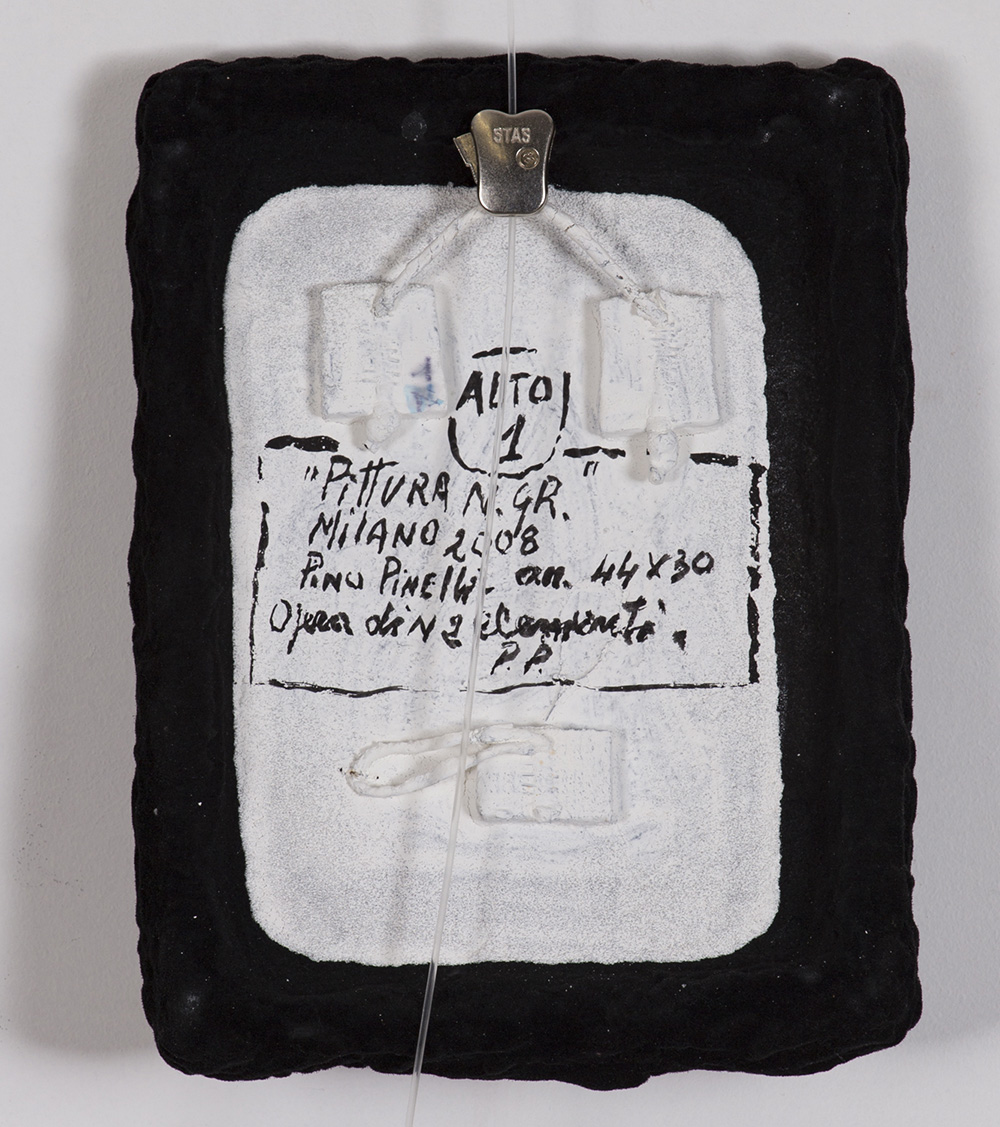 STAS
ALTO
1
"PITTURA N. GR. "
MILANO 2008
PINO PINELLI. cm. 44X30
Opera di N 2 elementi.
P.P.